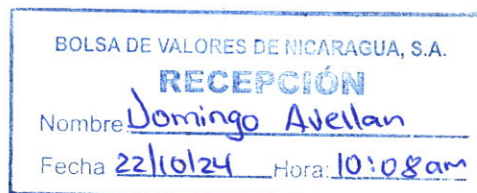 BOLSA DE VALORES DE NICARAGUA, S.A.
RECEPCIÓN
Nombre Domingo Avellan
Fecha 22/10/24 Hora: 10:08am